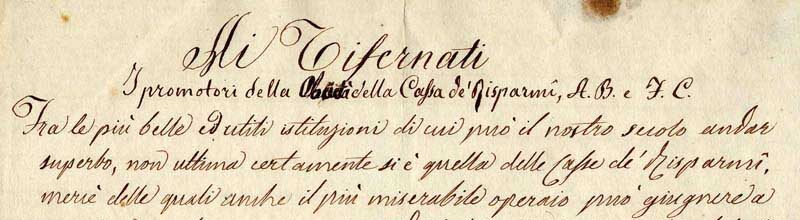 Alli Tifernati
I promotori della della Cassa de' Risparmî, A. B. e F. C.
Fra le più belle ed utili istituzioni di cui può il nostro secolo andar
superbo, non ultima certamente si è quella delle Casse de' Risparmî,
mercè delle quali anche il più miserabile operaio può giugnere a